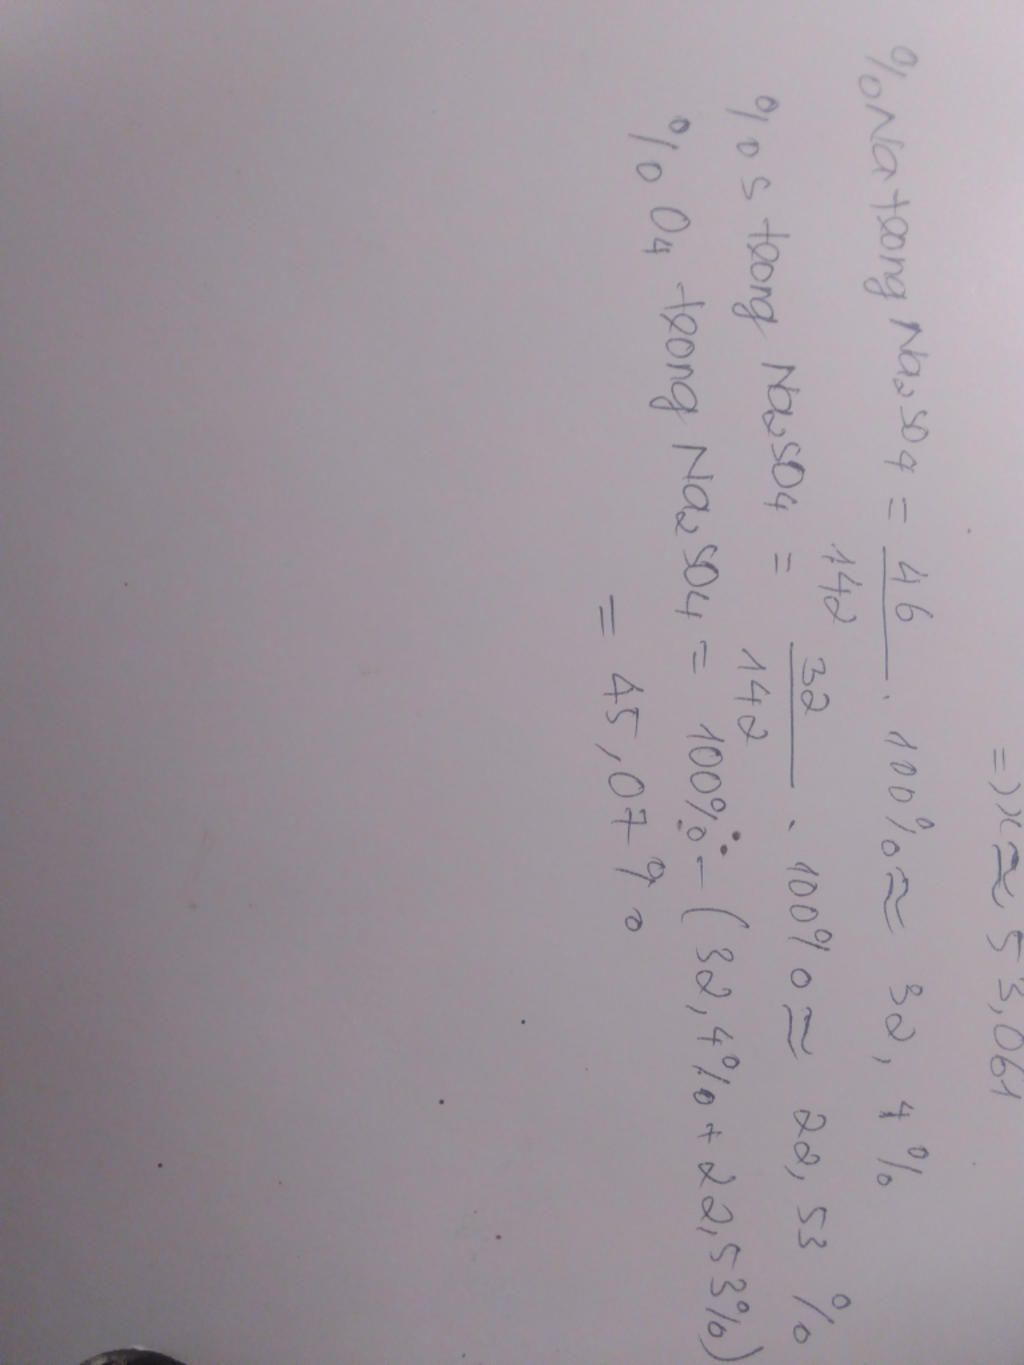 =) x ≈ 53,061
%Na trong Na2SO4 = 46/142 . 100% ≈ 32,4%
%S trong Na2SO4 = 32/142 . 100% ≈ 22,53%
%O4 trong Na2SO4 = 100% - (32,4% + 22,53%)
= 45,07%